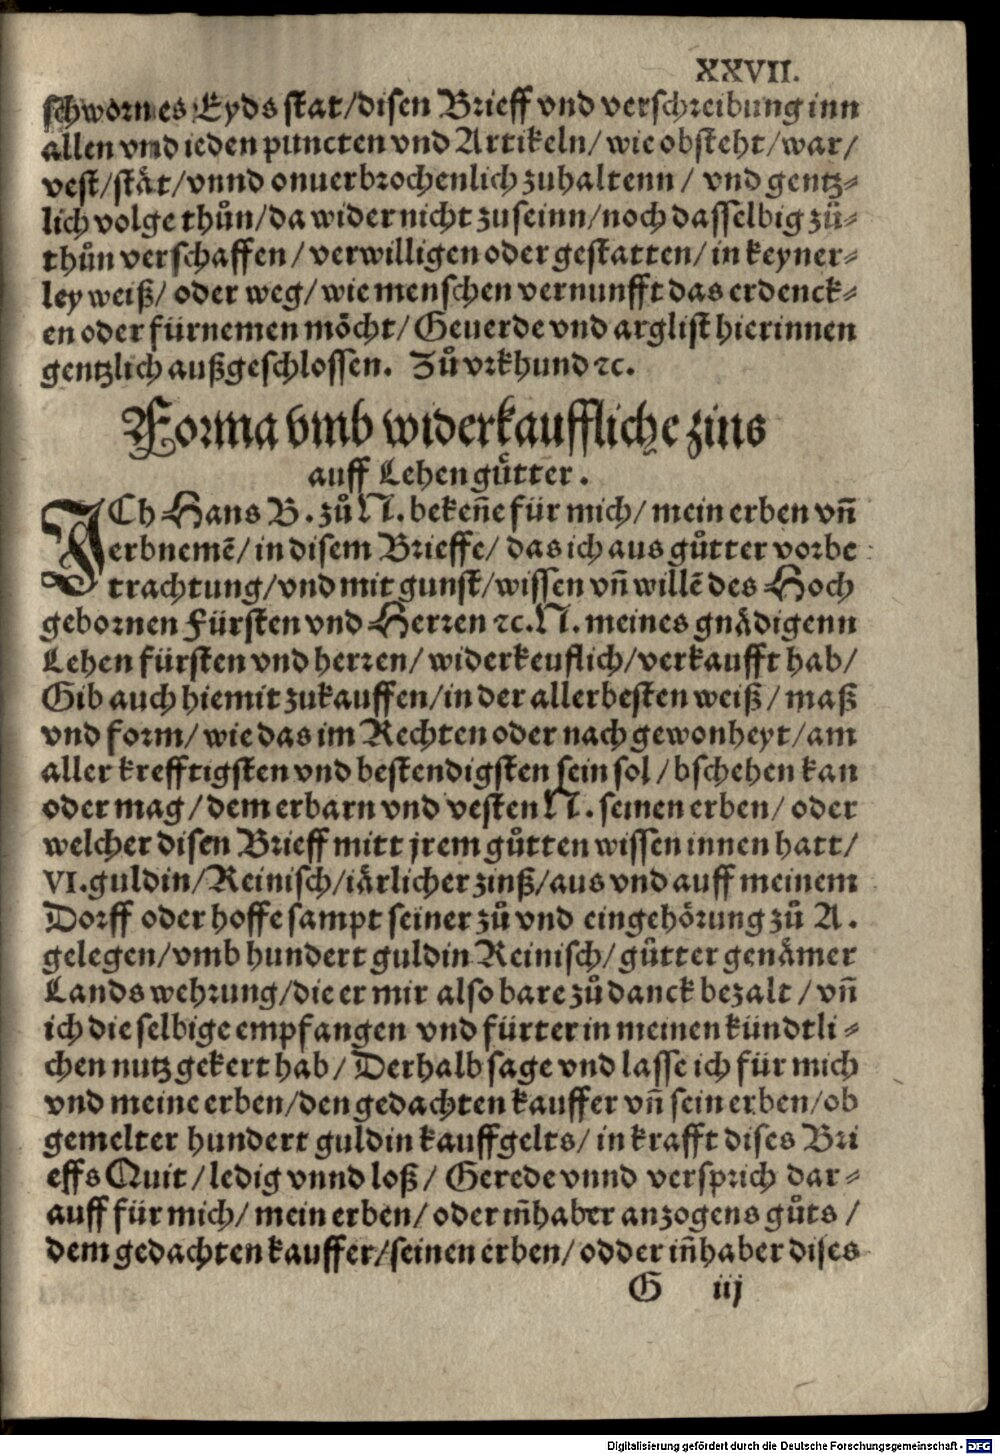 XXVII.
schwornes Eyds stat/disen Brieff vnd verschreibung inn
allen vnd ieden puncten vnd Artikeln/ wie obsteht/war/
vest/stät/vnnd onuerbrochenlich zuhaltenn/ vnd gentz-
lich volge thůn/da wider nicht zuseinn/noch dasselbig zů-
thůn verschaffen/ verwilligen oder gestatten/ in keyner-
ley weiß/ oder weg/ wie menschen vernunfft das erdenck-
en oder fürnemen möcht/ Geuerde vnd arglist hierinnen
gentzlich außgeschlossen. Zů vrkhund ꝛc.
Forma vmb widerkauffliche zins
auff Lehengůtter.
ICh Hans B. zů N. bekeñe für mich/ mein erben vñ
erbnemẽ/ in disem Brieffe/ das ich aus gůtter vorbe
trachtung/vnd mit gunst/wissen vñ willẽ des Hoch
gebornen Fürsten vnd Herren ꝛc. N. meines gnädigenn
Lehen fürsten vnd herren/ widerkeuflich/verkaufft hab/
Gib auch hiemit zukauffen/in der allerbesten weiß/ maß
vnd form/ wie das im Rechten oder nach gewonheyt/am
aller krefftigsten vnd bestendigsten sein sol/ bschehen kan
oder mag/ dem erbarn vnd vesten N. seinen erben/ oder
welcher disen Brieff mitt jrem gůtten wissen innen hatt/
VI. guldin/Reinisch/iärlicher zinß/aus vnd auff meinem
Dorff oder hoffe sampt seiner zů vnd eingehörung zů A.
gelegen/vmb hundert guldin Reinisch/ gůtter genämer
Lands wehrung/die er mir also bare zů danck bezalt/ vñ
ich die selbige empfangen vnd fürter in meinen kündtli-
chen nutz gekert hab/ Derhalb sage vnd lasse ich für mich
vnd meine erben/den gedachten kauffer vñ sein erben/ob
gemelter hundert guldin kauffgelts/ in krafft dises Bri
effs Quit/ ledig vnnd loß/ Gerede vnnd versprich dar-
auff für mich/ mein erben/ oder iñhaber anzogens gůts/
dem gedachten kauffer/seinen erben/ odder iñhaber dises
G iij
Digitalisierung gefördert durch die Deutsche Forschungsgemeinschaft - DFG